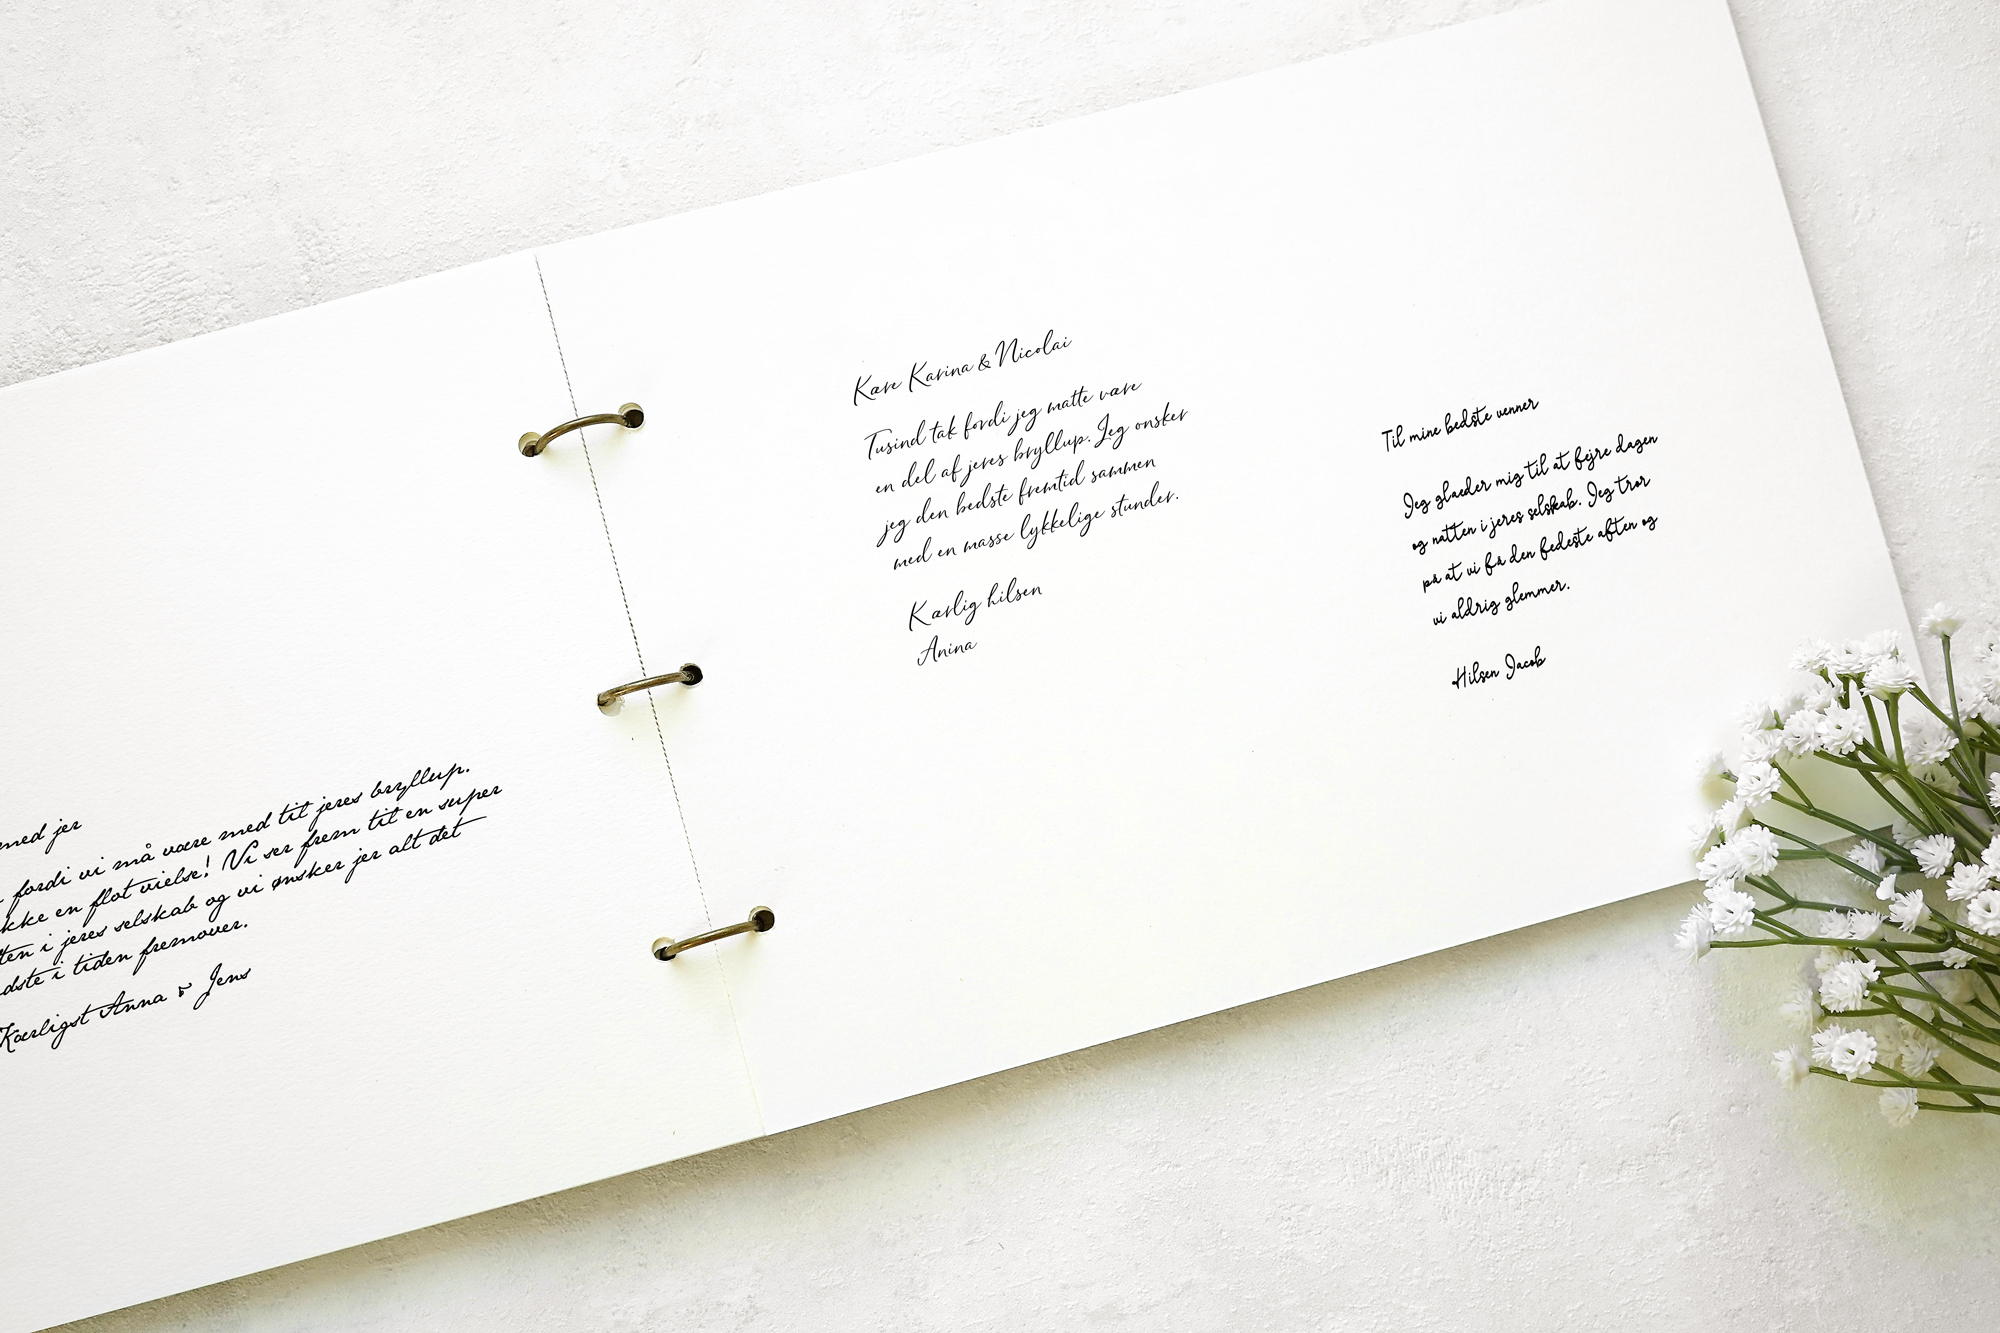 med jer
fordi vi må være med til jeres bryllup.
ikke en flot vielse! Vi ser frem til en super
ten i jeres selskab og vi ønsker jer alt det
dste i tiden fremover.
Kærligst Anna & Jens
Kære Karina & Nicolai
Tusind tak fordi jeg matte være
en del af jeres bryllup. Jeg onsker
jeg den bedste fremtid sammen
med en masse lykkelige stunder.
Kærlig hilsen
Anina
Til mine bedste venner
Jeg glaeder mig til at fejre dagen
og natten i jeres selskab. Jeg tror
på at vi få den fedeste aften og
vi aldrig glemmer.
Hilsen Jacob